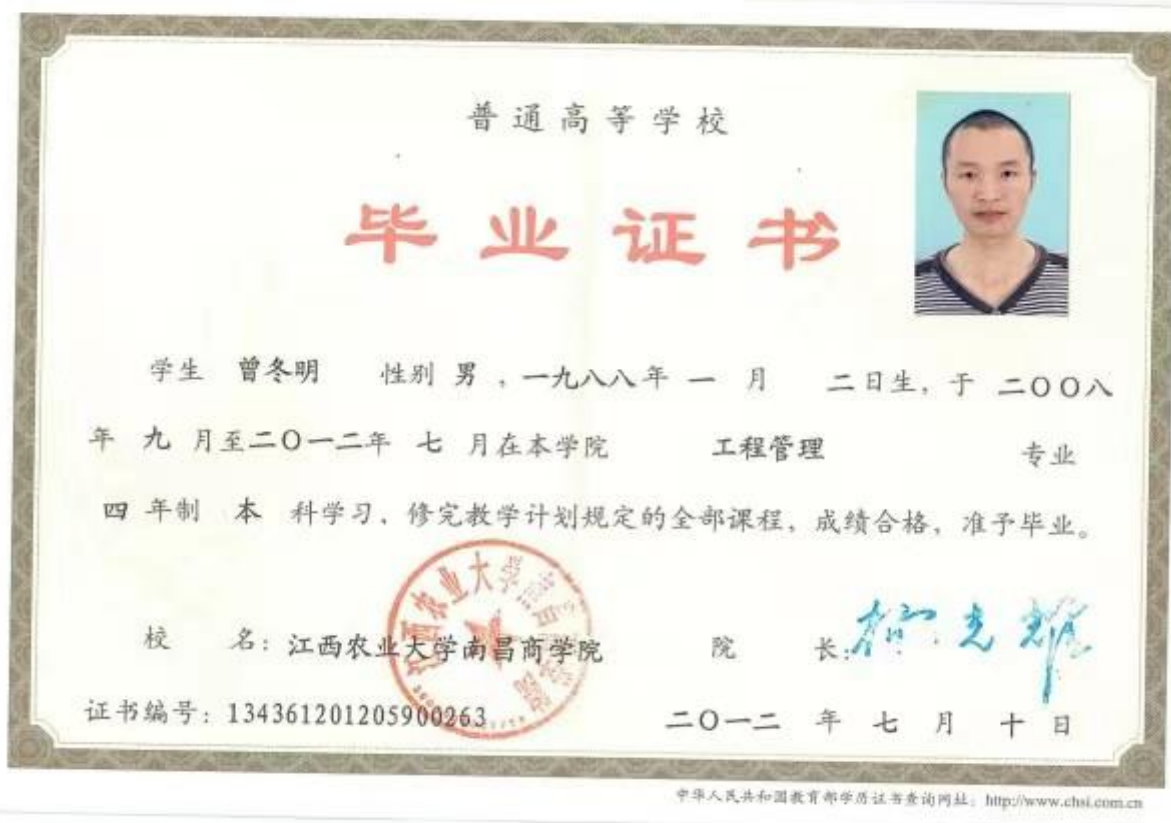 普通高等学校
毕业证书
学生 曾冬明 性别 男 ，一九八八年 一 月 二日生，于 二〇〇八
年 九 月至二〇一二年 七 月在本学院 工程管理 专业
四 年制 本 科学习、修完教学计划规定的全部课程，成绩合格，准予毕业。
江西农业大学南昌商学院
校 名：江西农业大学南昌商学院 院 长：
证书编号：134361201205900263 二〇一二 年 七 月 十 日
中华人民共和国教育部学历证书查询网址：http://www.chsi.com.cn